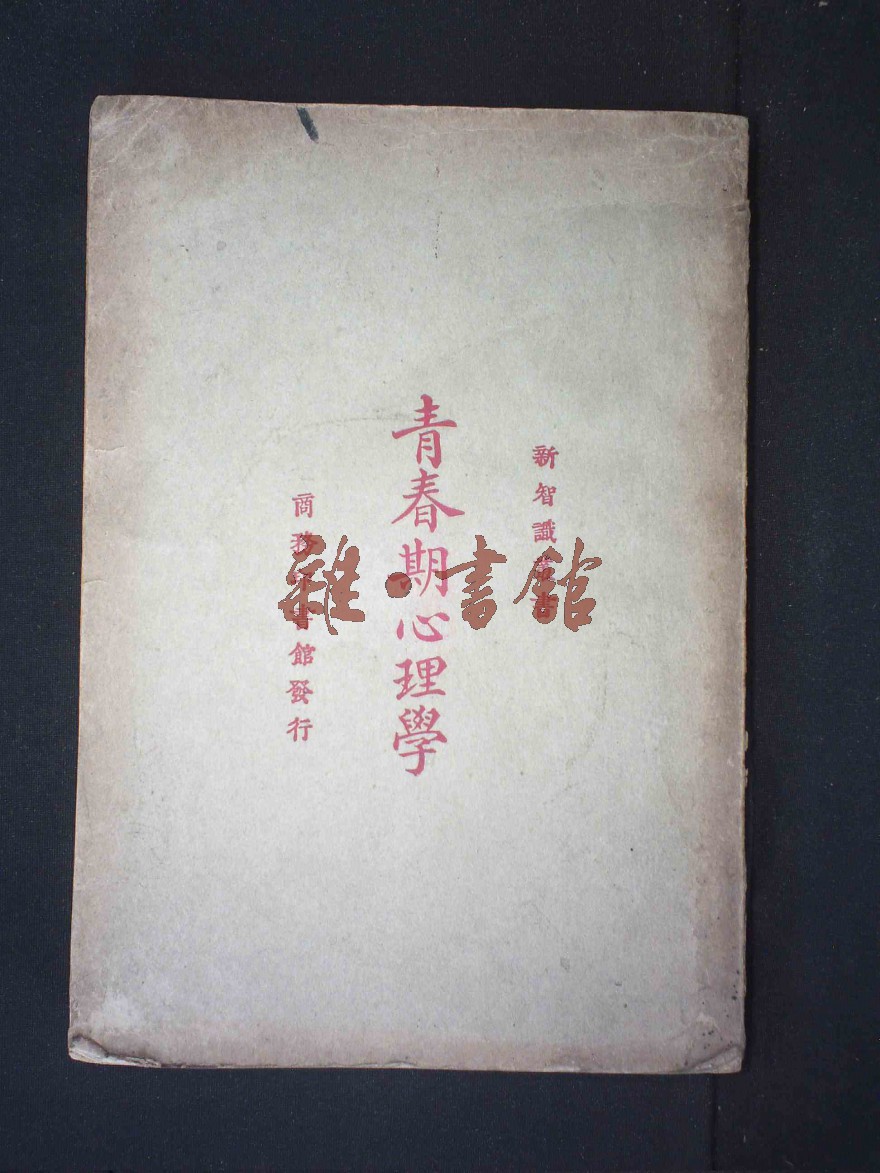 新智識叢書
青春期心理學
商務印書館發行
雜·書館